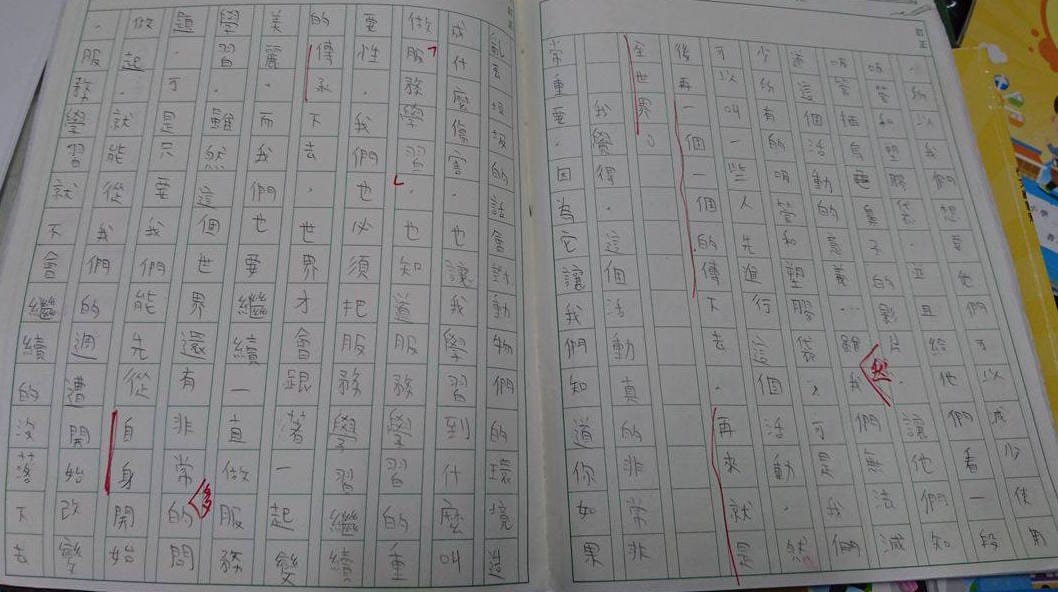 ，所以我們想要他們可以減少使用
吸管和塑膠袋，並且給他們看一段
吸管插烏龜鼻子的影片，讓他們知
道這個活動的意義…雖然我們無法減
少所有的吸管和塑膠袋，可是我們
可以叫一些人先進行這個活動，然
後再一個一個的傳下去，再來就是
全世界。
我覺得，這個活動真的非常非
常重要，因為它讓我們知道你如果
亂丟垃圾的話會對動物們的環境造
成什麼傷害，也讓我學習到什麼叫
做「服務學習」，也知道服務學習的重
要性，我們也必須把服務學習繼續
的傳承下去，世界才會跟著一起變
美麗，而我們也要繼續一直做服務
學習，雖然這個世界還有非常多的問
題，可是只要我們能先從自身開始
做起，就能從我們的週遭開始改變
，服務學習就不會繼續的沒落下去